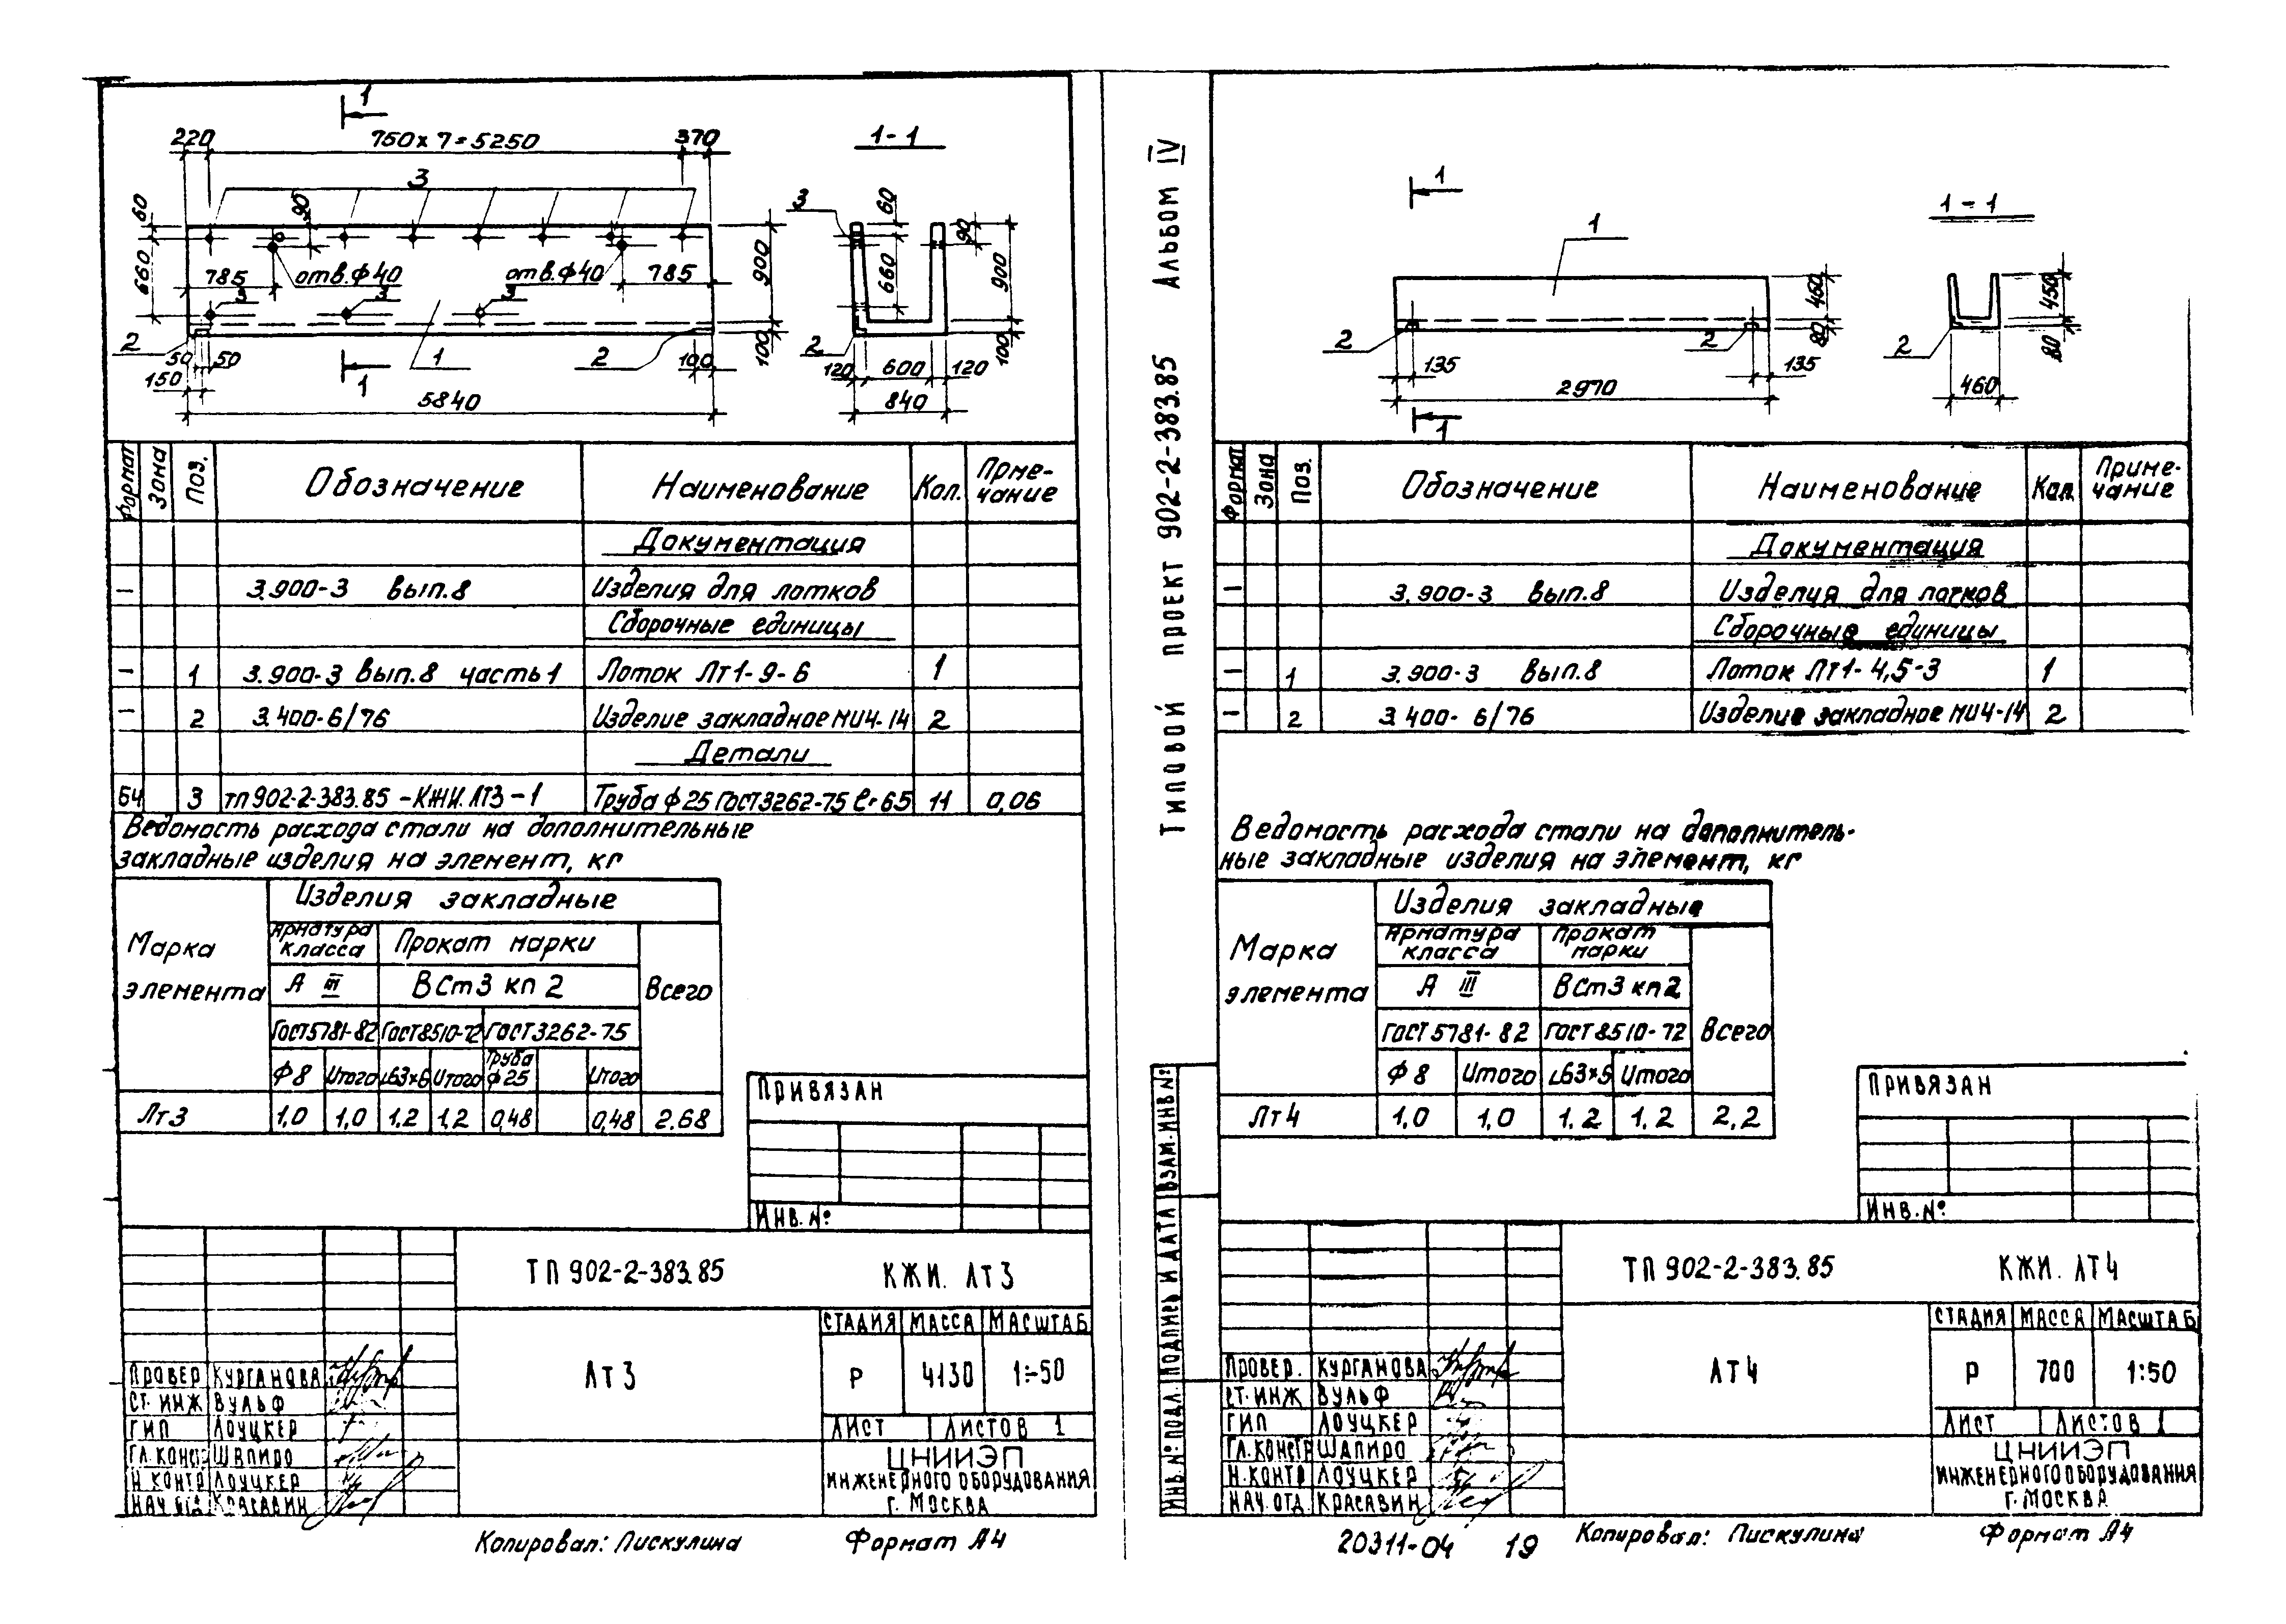 1
220 750×7=5250 370
1-1
3
60 90 3 60 90
660 900 660 900
785 отв.ф40 отв.ф40 785
3 3 3
2 50 50 1 2 100 100 2 100
150 1 120 600 120
5840 840
Формат Зона Поз. Обозначение Наименование Кол. Приме-
чание
Документация
– 3.900-3 вып.8 Изделия для лотков
Сборочные единицы
– 1 3.900-3 вып.8 часть 1 Лоток Лт1-9-6 1
– 2 3.400-6/76 Изделие закладное МИ4-14 2
Детали
Б4 3 тп902-2-383.85-КЖИ.ЛТ3-1 Труба ф25 ГОСТ3262-75 ℓ=65 11 0,06
Ведомость расхода стали на дополнительные
закладные изделия на элемент, кг
Изделия закладные
Марка элемента
Арматура класса Прокат марки Всего
А III ВСт3 кп 2
ГОСТ5781-82 ГОСТ8510-72 ГОСТ3262-75
Ф8 Итого L63×6 Итого Труба ф25 Итого
Лт3 1,0 1,0 1,2 1,2 0,48 0,48 2.68
ПРИВЯЗАН
ИНВ.№
ТП 902-2-383.85 КЖИ. ЛТ3
СТАДИЯ МАССА МАСШТАБ
ЛТ3 Р 4130 1:50
ЛИСТ ЛИСТОВ 1
ПРОВЕР КУРГАНОВА
СТ. ИНЖ ВУЛЬФ
ГИП ЛОУЦКЕР
ГЛ.КОНСТ ШАПИРО
Н.КОНТР ЛОУЦКЕР
НАЧ.ОТД КРАСАВИН
ЦНИИЭП
ИНЖЕНЕРНОГО ОБОРУДОВАНИЯ
Г. МОСКВА
Копировал: Пискулина Формат А4
ТИПОВОЙ ПРОЕКТ 902-2-383.85 АЛЬБОМ IV
1
1-1
1
460 450
2 2 80 2 80
135 135
2970 460
1
Формат Зона Поз. Обозначение Наименование Кол. Приме-
чание
Документация
– 3.900-3 вып.8 Изделия для лотков
Сборочные единицы
– 1 3.900-3 вып.8 Лоток Лт1-4,5-3 1
– 2 3.400-6/76 Изделие закладное МИ4-14 2
Ведомость расхода стали на дополнитель-
ные закладные изделия на элемент, кг
Изделия закладные
Марка элемента
Арматура класса Прокат марки Всего
А III ВСт3 кп2
ГОСТ5781-82 ГОСТ8510-72
Ф8 Итого L63×5 Итого
Лт4 1,0 1,0 1,2 1,2 2,2
ПРИВЯЗАН
ИНВ.№
ИНВ.№ ПОДЛ. ПОДПИСЬ И ДАТА ВЗАМ.ИНВ №
ТП 902-2-383.85 КЖИ. ЛТ4
СТАДИЯ МАССА МАСШТАБ
ЛТ4 Р 700 1:50
ЛИСТ ЛИСТОВ 1
ПРОВЕР. КУРГАНОВА
СТ. ИНЖ ВУЛЬФ
ГИП ЛОУЦКЕР
ГЛ.КОНСТР ШАПИРО
Н.КОНТР ЛОУЦКЕР
НАЧ.ОТД. КРАСАВИН
ЦНИИЭП
ИНЖЕНЕРНОГО ОБОРУДОВАНИЯ
Г.МОСКВА
20311-04 19 Копировал: Пискулина Формат А4